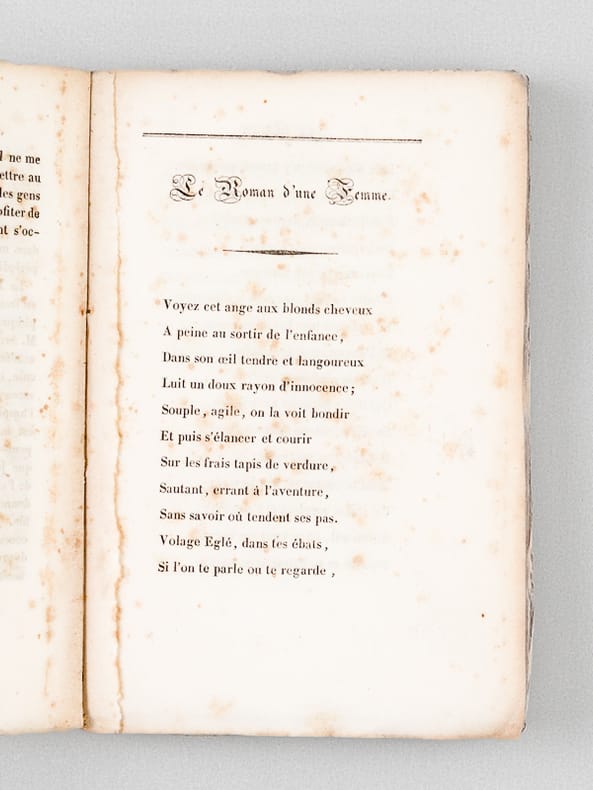 l ne me
ettre au
les gens
ofiter de
nt s'oc-
Le Roman d'une Femme.
Voyez cet ange aux blonds cheveux
A peine au sortir de l'enfance,
Dans son œil tendre et langoureux
Luit un doux rayon d'innocence;
Souple, agile, on la voit bondir
Et puis s'élancer et courir
Sur les frais tapis de verdure,
Sautant, errant à l'aventure,
Sans savoir où tendent ses pas.
Volage Eglé, dans tes ébats,
Si l'on te parle ou te regarde,